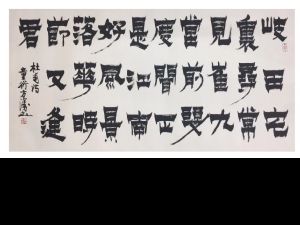 岐王宅
裏尋常
見崔九
堂前幾
度聞正
是江南
好風景
落華時
節又逢
君
杜甫詩